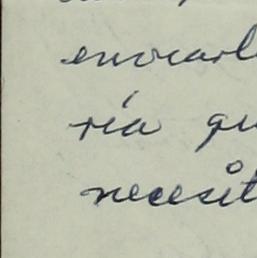 enviarl
ría qu
necesit